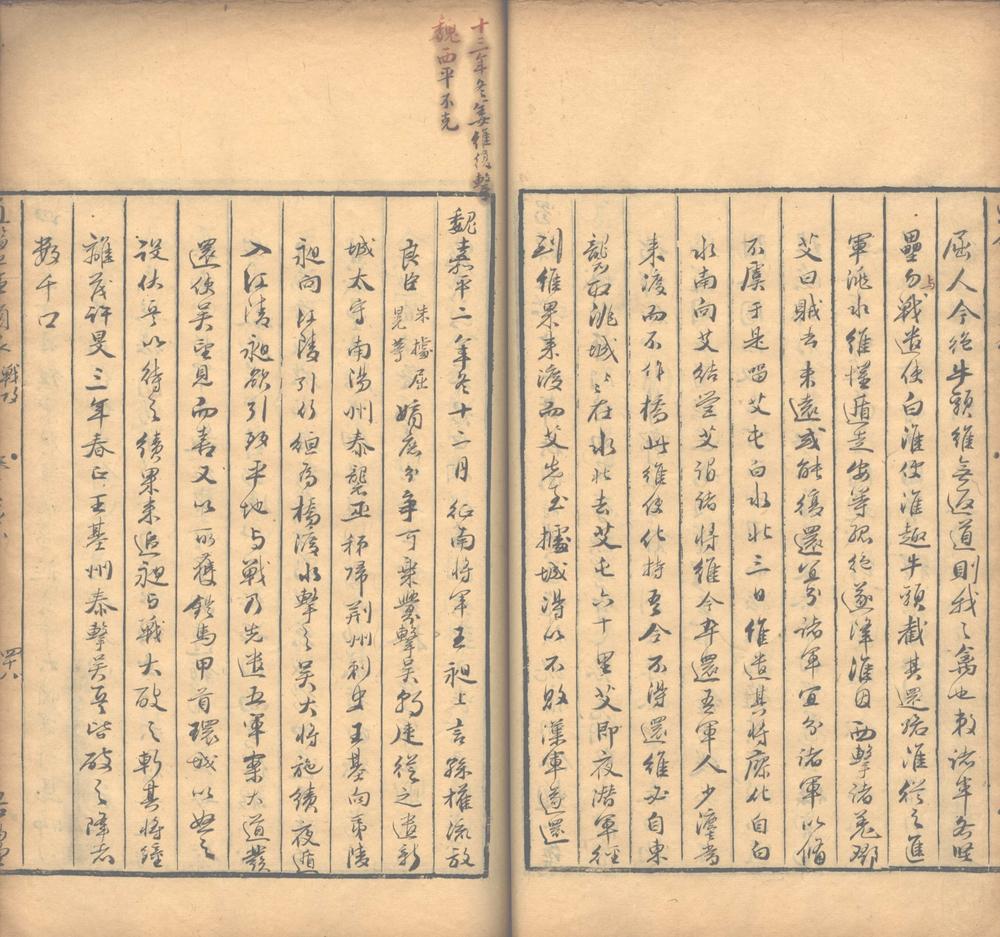 屈人今絶牛頭維無返道則我之禽也敕諸軍各堅
壘勿與戰遣使白淮使淮趣牛頭截其還路淮從之進
軍洮水維懼遁走安等孤絶遂降淮因西擊諸羌鄧
艾曰賊去未遠或能復還宜分諸軍宜分諸軍以備
不虞于是留艾屯白水北三日維遣其將廖化自白
水南向艾結営艾謂諸將維今卒還吾軍人少灋當
来渡而不作橋此維使化持吾令不得還維必自東
襲取洮城洮城〻在水北去艾屯六十里艾即夜潜軍徑
到維果来渡而艾先至據城得以不敗漢軍遂還
十三年冬姜維復擊
魏西平不克
魏嘉平二年冬十二月征南將軍王昶上言孫權流放
良臣朱據屈晃等嫡庶分争可乗釁擊吴朝廷從之遣新
城太守南陽州泰襲巫秭帰荆州刺史王基向夷陵
昶向江陵引竹絙為橋渡水擊之吴大將施績夜遁
入江陵昶欲引致平地与戰乃先遣五軍案大道發
還使吴望見而喜又以所獲鎧馬甲首環城以怒之
設伏兵以待之績果来追昶与戰大破之斬其將鍾
離茂許旻三年春正王基州泰擊吴兵皆破之降者
数千口